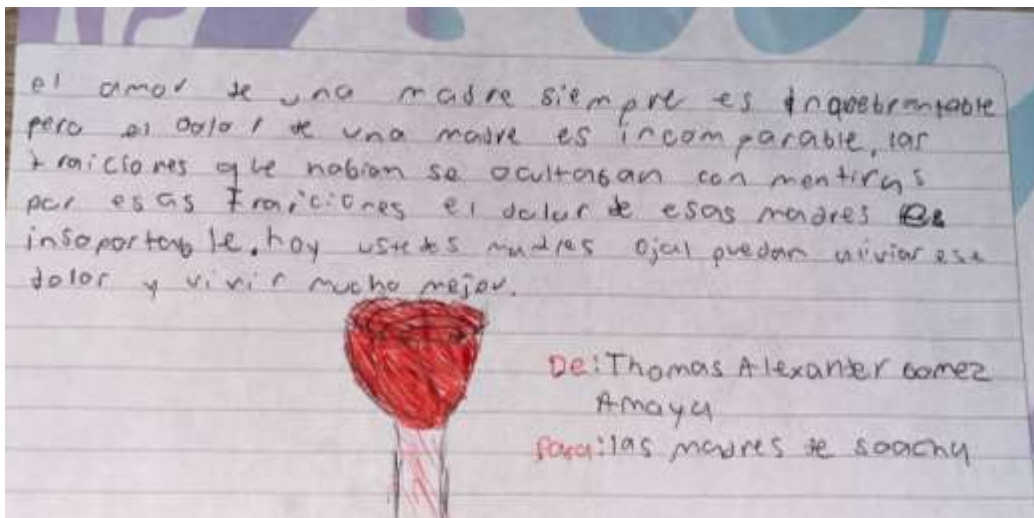 el amor de una madre siempre es inquebrantable
pero el dolor de una madre es incomparable, las
traiciones que habian se ocultaban con mentiras
por esas traiciones el dolor de esas madres es
insoportable. hoy ustedes madres ojal puedan aliviar ese
dolor y vivir mucho mejor.
De: Thomas Alexander Gomez
Amaya
para: las madres de soacha